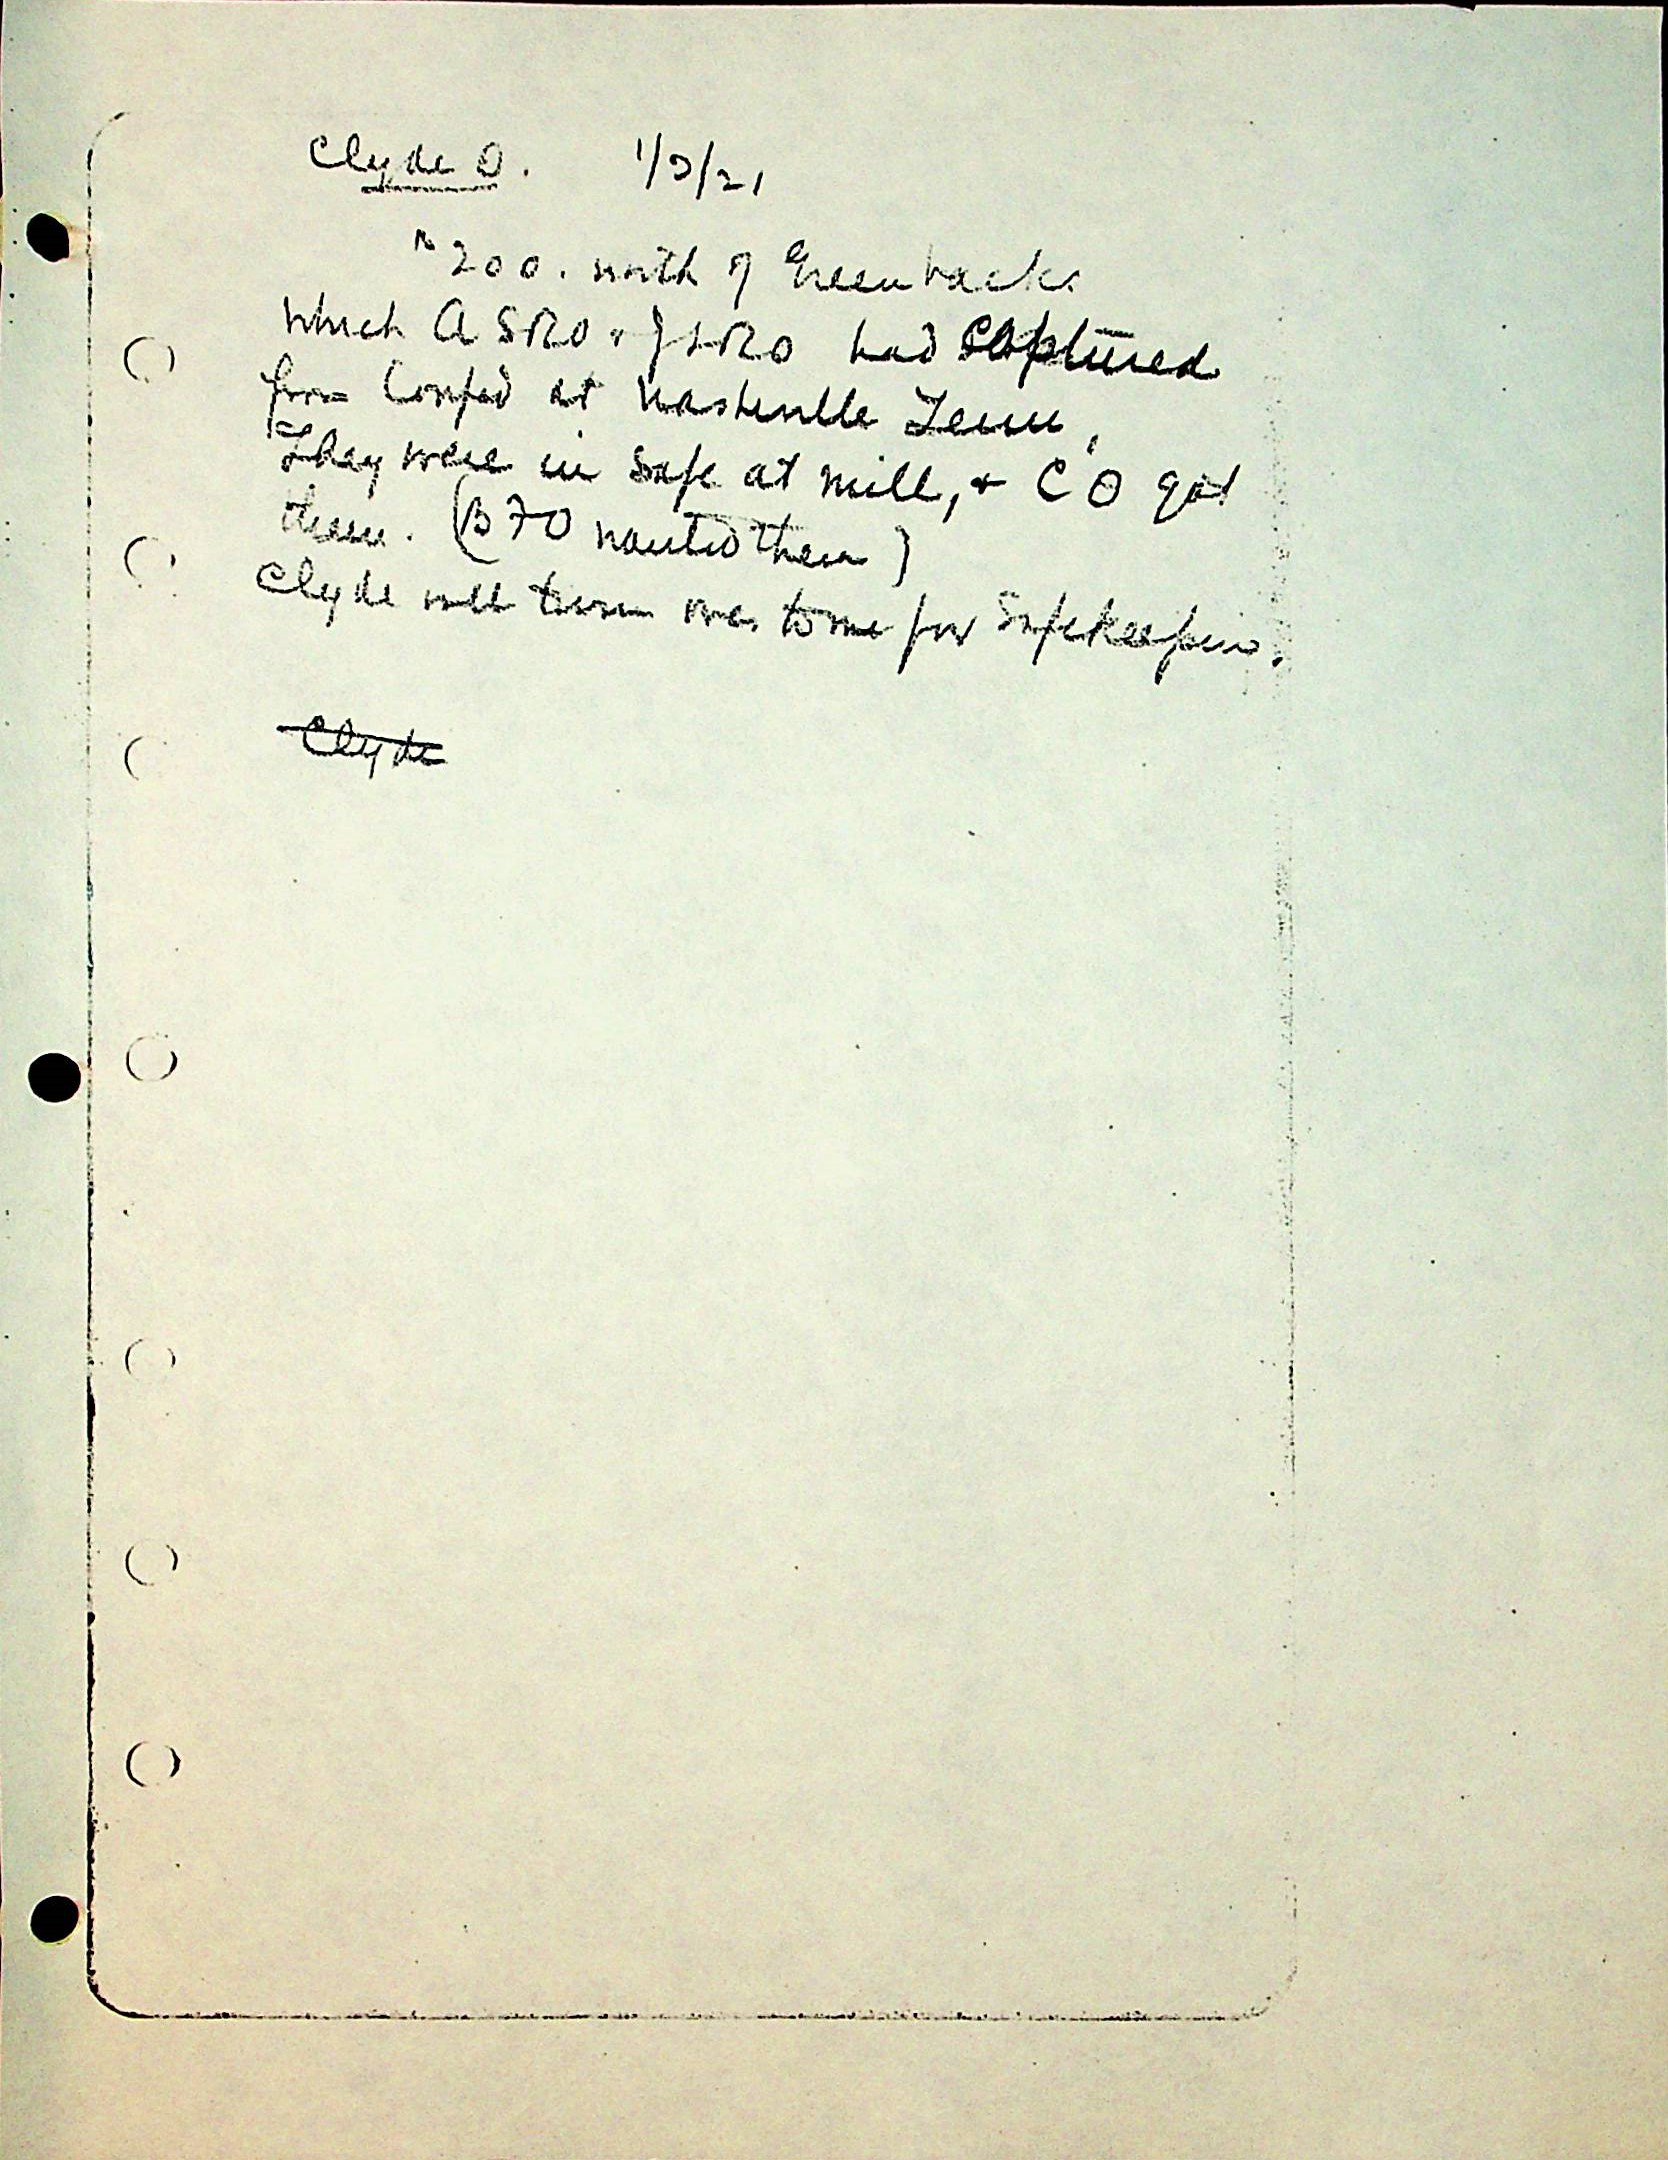 Clyde O. 1/3/21
$200. worth of Greenbacks
which ASRO & JLRO had captured
from Confed at Nashville Tenn,
They were in safe at mill, & C O got
them. (B F O wanted them)
Clyde will turn over to me for Safekeeping.
Clyde